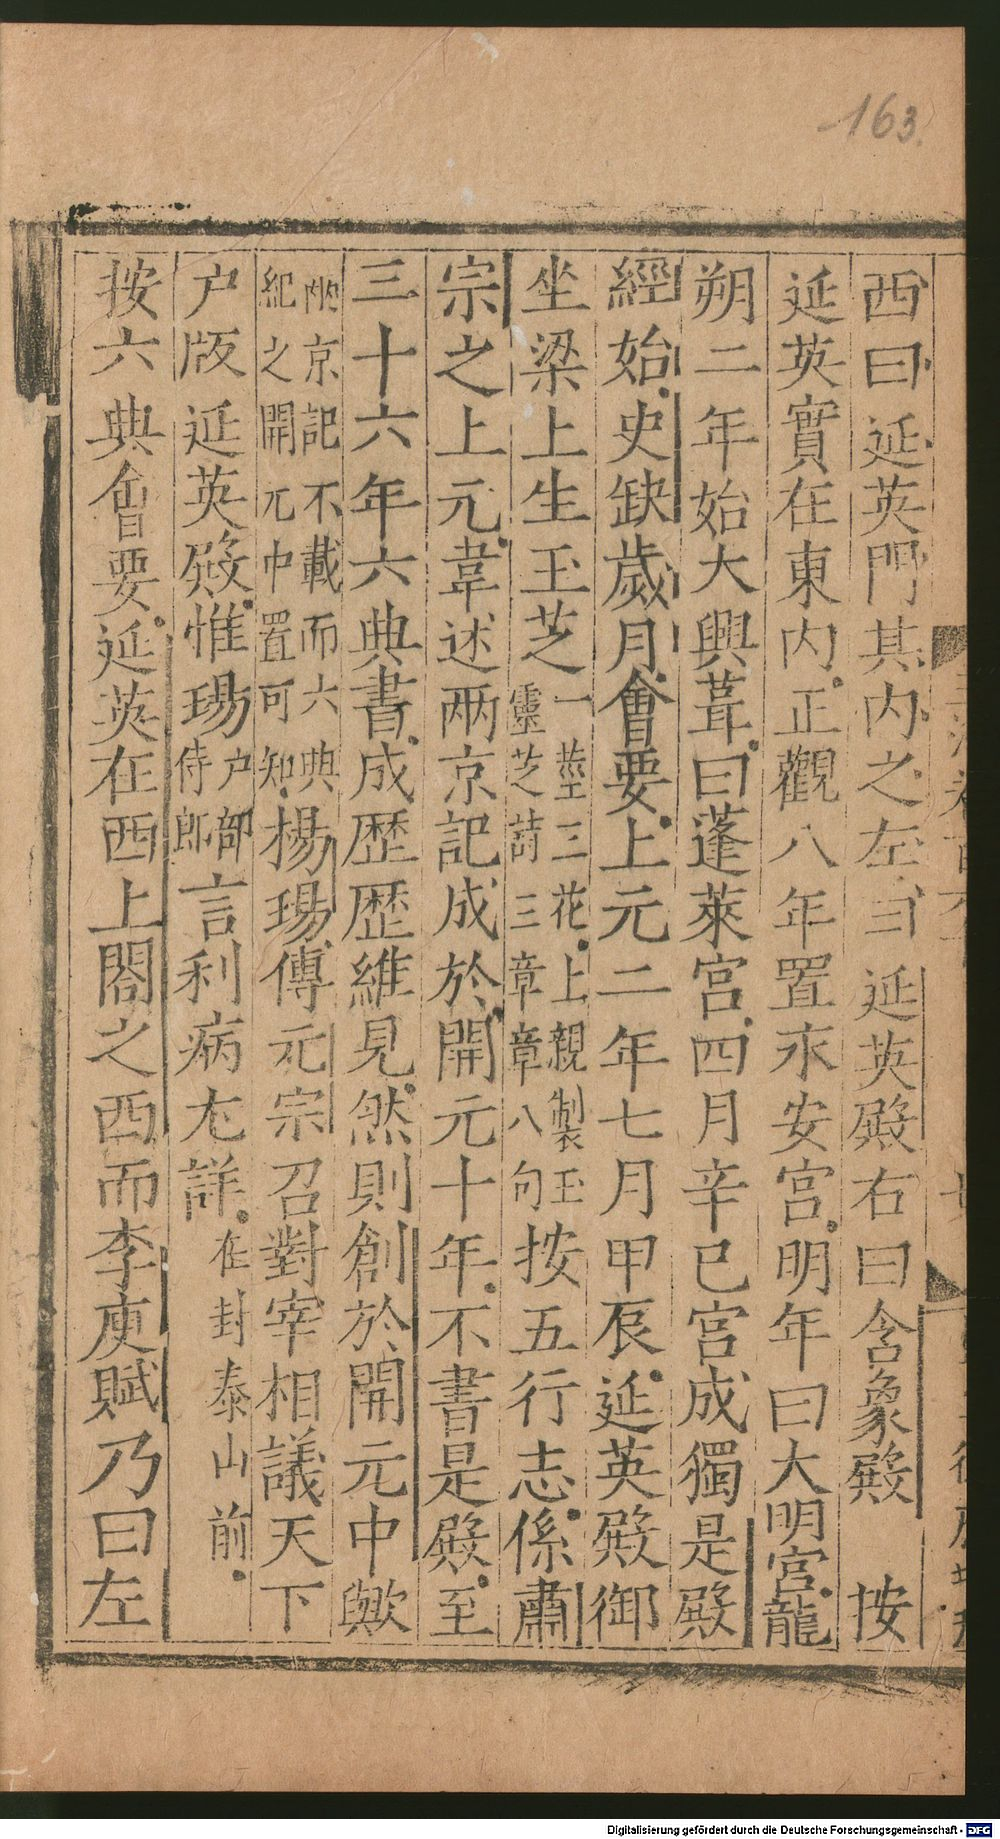 163
西曰延英門其内之左曰延英殿右曰含象殿　按
延英實在東内正觀八年置永安宫明年曰大明宫龍
朔二年始大興葺曰蓬萊宫四月辛巳宫成獨是殿
經始史缺歲月會要上元二年七月甲辰延英殿御
坐梁上生玉芝一莖三花上親製玉靈芝詩三章章八句按五行志係肅
宗之上元韋述兩京記成於開元十年不書是殿至
三十六年六典書成歷歷維見然則創於開元中歟
兩京記不載而六典紀之開元中置可知楊瑒傳元宗召對宰相議天下
户版延英殿惟瑒户部侍郎言利病尤詳在封泰山前
按六典會要延英在西上閤之西而李庾賦乃曰左
Digitalisierung gefördert durch die Deutsche Forschungsgemeinschaft - DFG